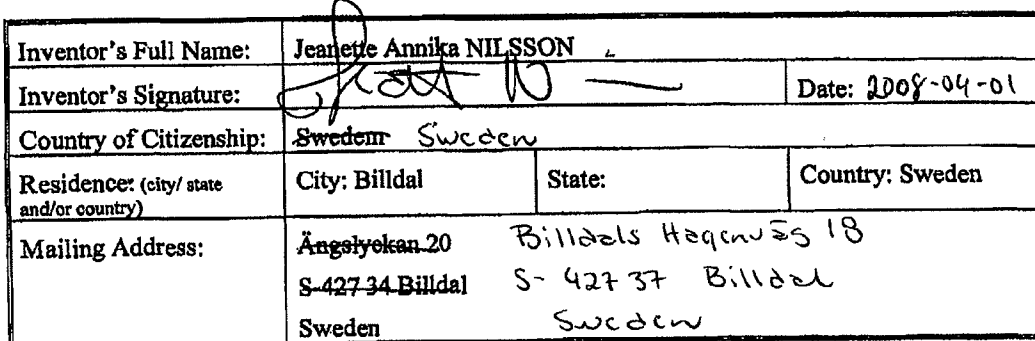 Inventor's Full Name: Jeanette Annika NILSSON
Inventor's Signature: Date: 2008-04-01
Country of Citizenship: Swedem Sweden
Residence: (city/ state and/or country) City: Billdal State: Country: Sweden
Mailing Address: Ängslyckan 20 Billdals Hagenväg 18
S-427 34 Billdal S-427 37 Billdal
Sweden Sweden